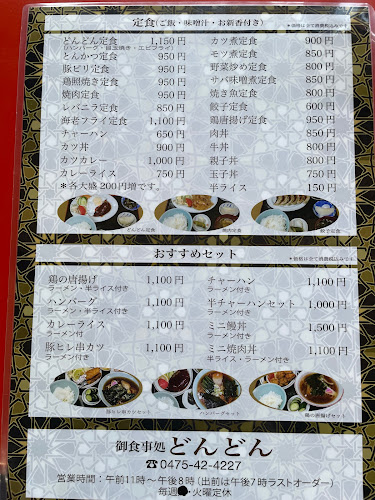 定食(ご飯・味噌汁・お新香付き)
＊価格は全て消費税込みです。
どんどん定食 1,150円
(ハンバーグ・目玉焼き・エビフライ)
とんかつ定食 950円
豚ヒレ定食 950円
鶏照焼き定食 950円
焼肉定食 950円
レバニラ定食 850円
海老フライ定食 1,100円
チャーハン 650円
カツ丼 900円
カツカレー 1,000円
カレーライス 750円
＊各大盛200円増です。
カツ煮定食 900円
モツ煮定食 800円
野菜炒め定食 800円
サバ味噌煮定食 850円
焼き魚定食 800円
餃子定食 600円
鶏唐揚げ定食 900円
肉丼 850円
牛丼 800円
親子丼 800円
玉子丼 750円
半ライス 150円
どんどん定食
焼肉定食
餃子定食
おすすめセット
＊価格は全て消費税込みです。
鶏の唐揚げ 1,100円
ラーメン・半ライス付き
ハンバーグ 1,100円
ラーメン・半ライス付き
カレーライス 1,100円
ラーメン付
豚ヒレ串カツ 1,100円
ラーメン付き
チャーハン 1,100円
ラーメン付き
半チャーハンセット 1,000円
ラーメン付き
ミニ鰻丼 1,500円
ラーメン付き
ミニ焼肉丼 1,100円
半ライス・ラーメン付き
豚ヒレ串カツセット
ハンバーグセット
鶏の唐揚げセット
御食事処どんどん
☎0475-42-4227
営業時間：午前11時～午後8時(出前は午後7時ラストオーダー)
毎週・火曜定休